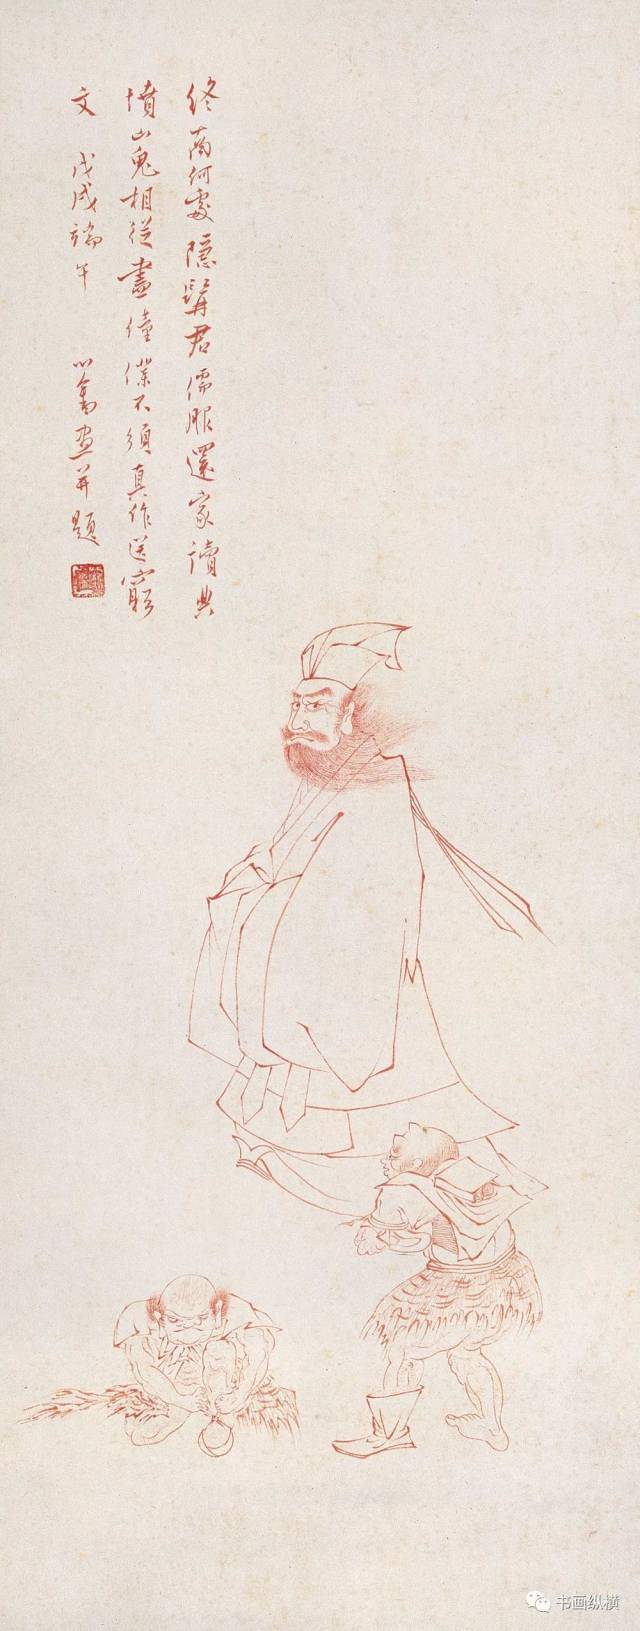 終南何處隱髯君儒服還家讀典
墳山鬼相從盡僮僕不須真作送窮
文 戊戌端午 心畬畫并題
书画纵横